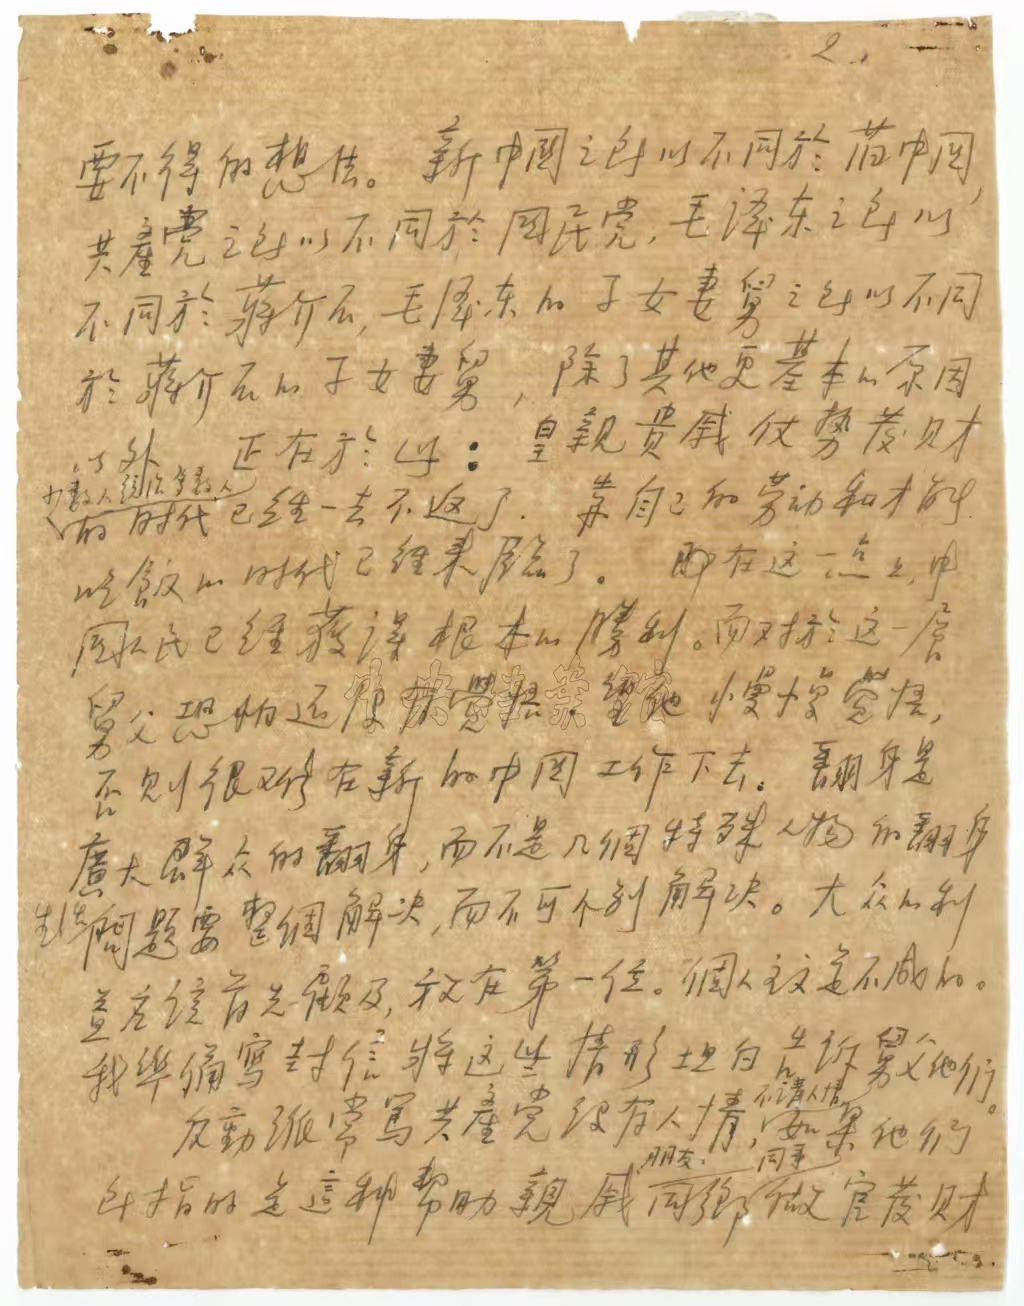 2.
要不得的想法。 新中國之所以不同於舊中國,
共產党之所以不同於國民党,毛泽东之所以
不同於蔣介石,毛泽东的子女妻舅之所以不同
於蔣介石的子女妻舅,除了其他更基本的原因
以外 正在於此: 皇親貴戚仗勢发财
少数人统治多数人
的时代已经一去不返了. 靠自己的劳动和才能
吃飯的时代已经来臨了。 即在这一点上,中
國人民已经获得根本的勝利。而对於这一层
舅父恐怕还没有覺悟.望他慢慢覺悟,
否则很难在新的中国工作下去。 翻身是
廣大群众的翻身,而不是几個特殊人物的翻身
生活問題要整個解决,而不可个别解决。大众的利
益应该首先顧及,放在第一位。個人主义是不成的。
我準備寫封信將这些情形坦白告訴舅父他们。
反動派常罵共產党没有人情,不講人情,如果他们
朋友. 同事
所指的是這种帮助親戚同鄉做官发财
中央档案館